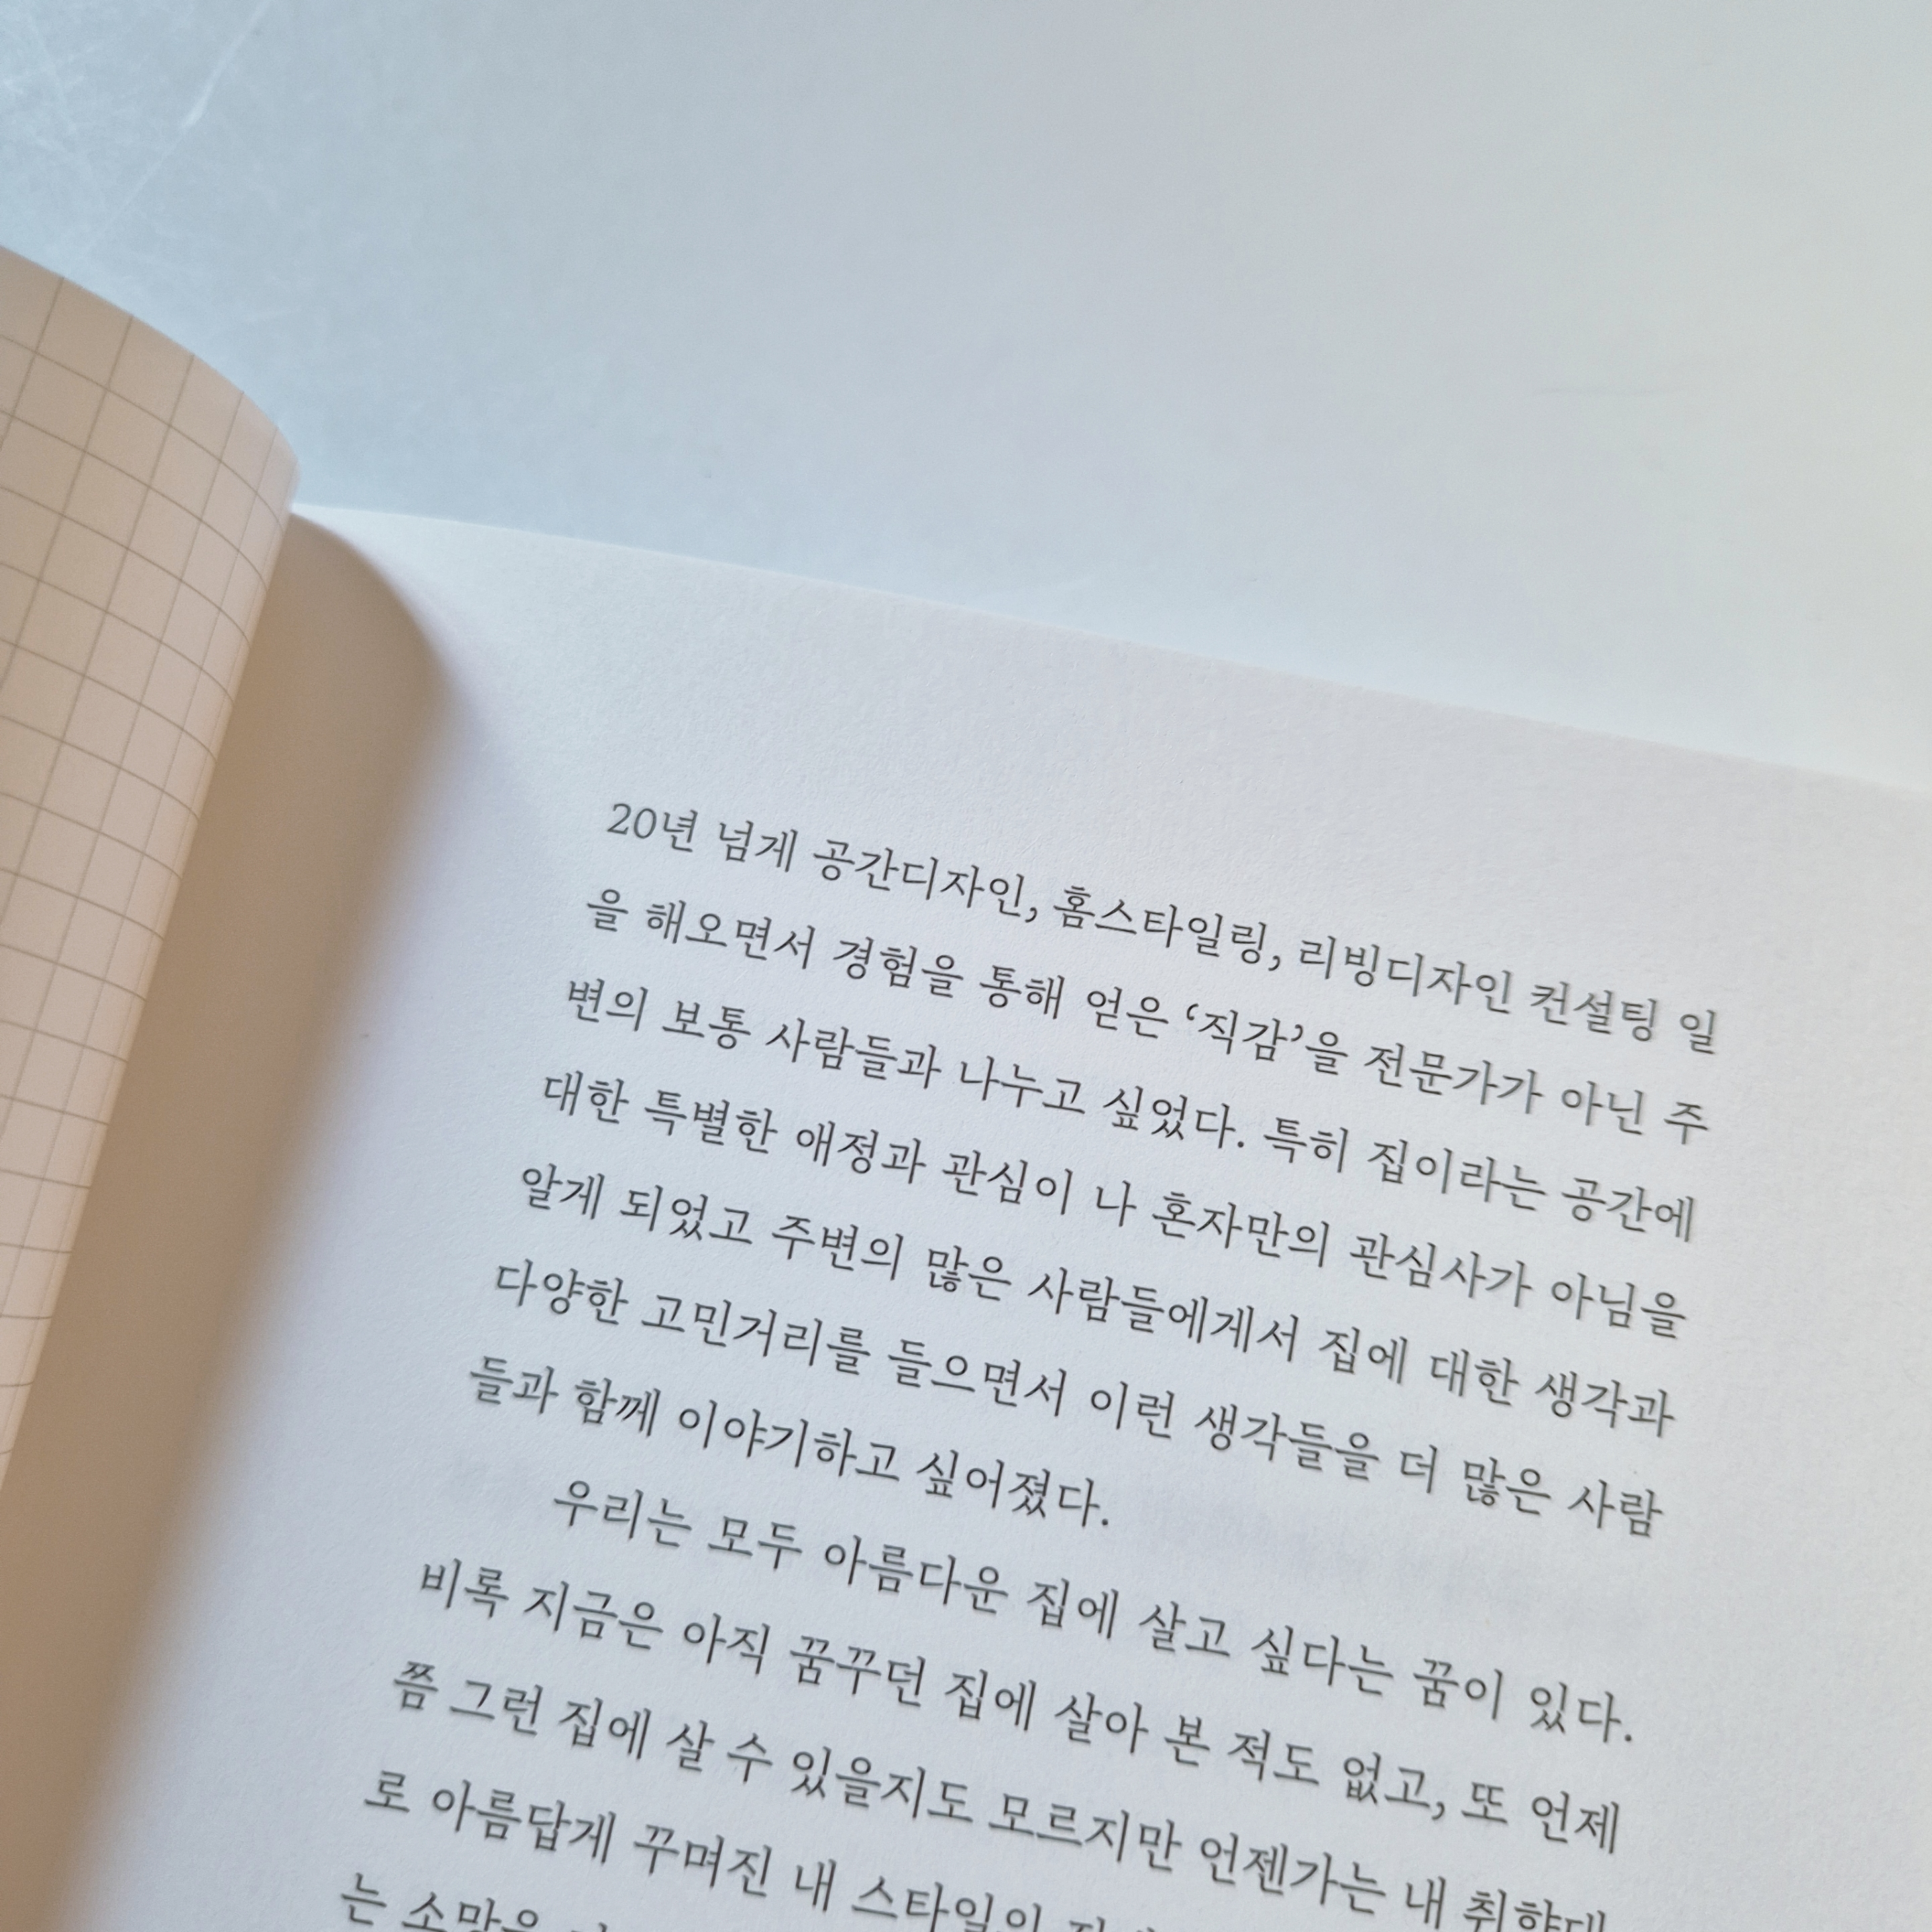 20년 넘게 공간디자인, 홈스타일링, 리빙디자인 컨설팅 일
을 해오면서 경험을 통해 얻은 ‘직감’을 전문가가 아닌 주
변의 보통 사람들과 나누고 싶었다. 특히 집이라는 공간에
대한 특별한 애정과 관심이 나 혼자만의 관심사가 아님을
알게 되었고 주변의 많은 사람들에게서 집에 대한 생각과
다양한 고민거리를 들으면서 이런 생각들을 더 많은 사람
들과 함께 이야기하고 싶어졌다.
우리는 모두 아름다운 집에 살고 싶다는 꿈이 있다.
비록 지금은 아직 꿈꾸던 집에 살아 본 적도 없고, 또 언제
쯤 그런 집에 살 수 있을지도 모르지만 언젠가는 내 취향대
로 아름답게 꾸며진 내 스타일의
는 소망을